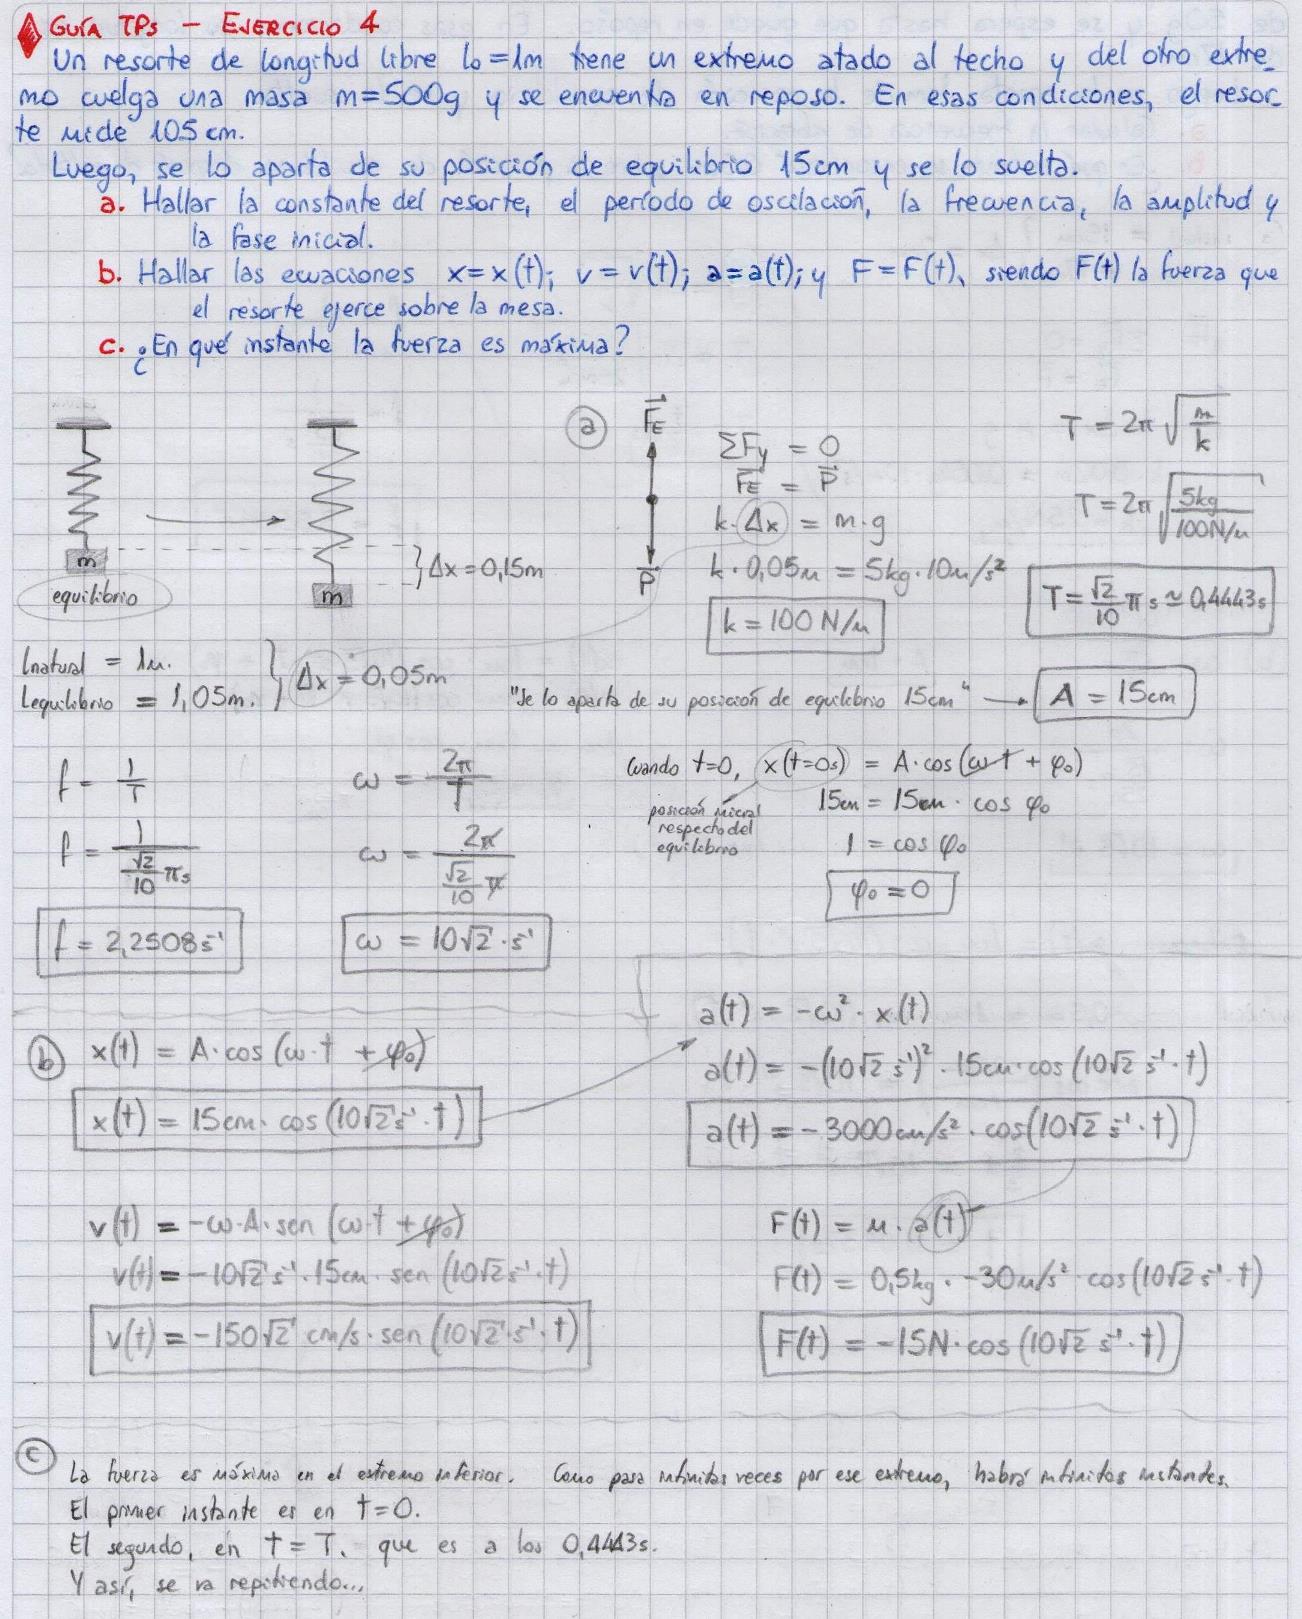 GUÍA TPs – EJERCICIO 4
Un resorte de longitud libre l₀ = 1m tiene un extremo atado al techo y del otro extre-
mo cuelga una masa m=500g y se encuentra en reposo. En esas condiciones, el resor-
te mide 105 cm.
Luego, se lo aparta de su posición de equilibrio 15cm y se lo suelta.
a. Hallar la constante del resorte, el período de oscilación, la frecuencia, la amplitud y
la fase inicial.
b. Hallar las ecuaciones x = x(t); v = v(t); a = a(t); y F = F(t), siendo F(t) la fuerza que
el resorte ejerce sobre la mesa.
c. ¿En qué instante la fuerza es máxima?
m
equilibrio
m
Δx = 0,15m
Lnatural = 1m.
Lequilibrio = 1,05m.
Δx = 0,05m
a
F_E
P
ΣFy = 0
F_E = P
k · Δx = m · g
k · 0,05m = 5kg · 10m/s²
k = 100 N/m
T = 2π √(m/k)
T = 2π √(5kg/100N/m)
T = √2/10 π s ≃ 0,4443s
"Se lo aparta de su posición de equilibrio 15cm" → A = 15cm
f = 1/T
f = 1/(√2/10 π s)
f = 2,2508 s⁻¹
ω = 2π/T
ω = 2π/(√2/10 π)
ω = 10√2 · s⁻¹
Cuando t=0, x(t=0s) = A · cos (ωt + φ₀)
posición inicial
respecto del
equilibrio
15cm = 15cm · cos φ₀
1 = cos φ₀
φ₀ = 0
b
x(t) = A · cos (ω · t + φ₀)
x(t) = 15cm · cos (10√2 s⁻¹ · t)
v(t) = -ω · A · sen (ω · t + φ₀)
v(t) = -10√2 s⁻¹ · 15cm · sen (10√2 s⁻¹ · t)
v(t) = -150√2 cm/s · sen (10√2 · s⁻¹ · t)
a(t) = -ω² · x(t)
a(t) = -(10√2 s⁻¹)² · 15cm · cos (10√2 s⁻¹ · t)
a(t) = -3000cm/s² · cos(10√2 s⁻¹ · t)
F(t) = m · a(t)
F(t) = 0,5kg · -30m/s² · cos(10√2 s⁻¹ · t)
F(t) = -15N · cos (10√2 s⁻¹ · t)
c
La fuerza es máxima en el extremo inferior. Como pasa infinitas veces por ese extremo, habrá infinitos instantes.
El primer instante es en t=0.
El segundo, en t = T, que es a los 0,4443s.
Y así, se va repitiendo...